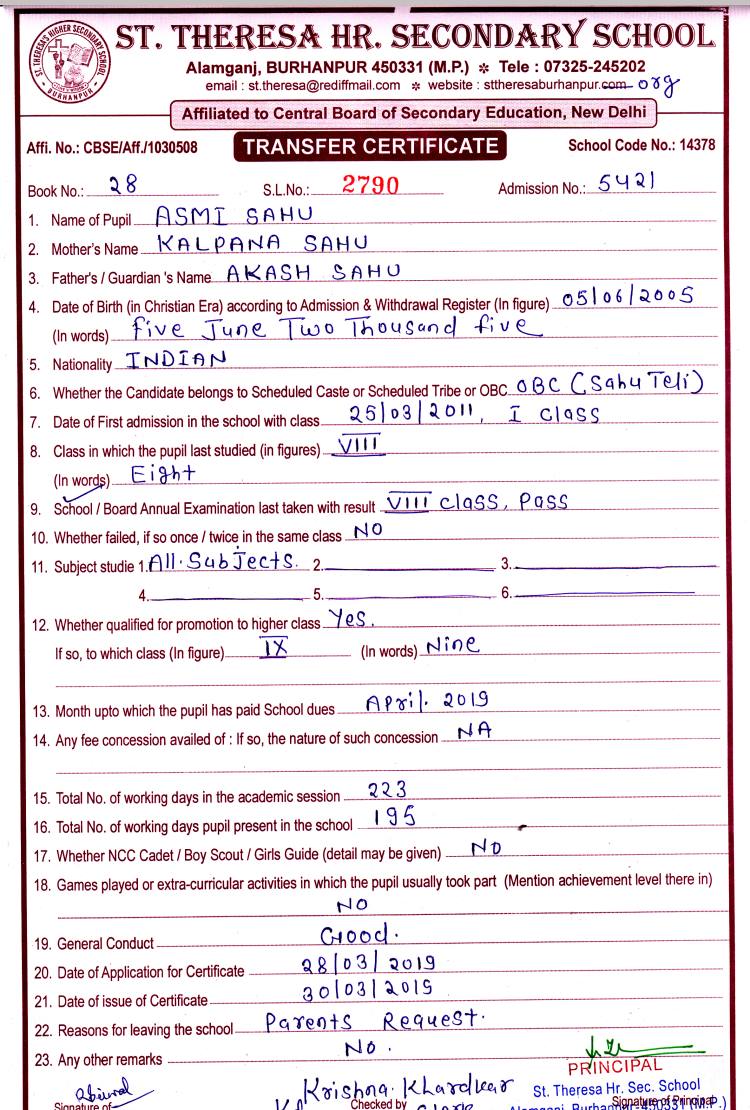 ST. THERESA'S HIGHER SECONDARY SCHOOL
BURHANPUR
ST. THERESA HR. SECONDARY SCHOOL
Alamganj, BURHANPUR 450331 (M.P.) * Tele : 07325-245202
email : st.theresa@rediffmail.com * website : sttheresaburhanpur.com org
Affiliated to Central Board of Secondary Education, New Delhi
Affi. No.: CBSE/Aff./1030508 TRANSFER CERTIFICATE School Code No.: 14378
Book No.: 28 S.L.No.: 2790 Admission No.: 5421
1. Name of Pupil ASMI SAHU
2. Mother's Name KALPANA SAHU
3. Father's / Guardian 's Name AKASH SAHU
4. Date of Birth (in Christian Era) according to Admission & Withdrawal Register (In figure) 05/06/2005
(In words) five June Two Thousand five
5. Nationality INDIAN
6. Whether the Candidate belongs to Scheduled Caste or Scheduled Tribe or OBC OBC (Sahu Teli)
7. Date of First admission in the school with class 25/03/2011, I class
8. Class in which the pupil last studied (in figures) VIII
(In words) Eight
9. School / Board Annual Examination last taken with result VIII class, Pass
10. Whether failed, if so once / twice in the same class NO
11. Subject studie 1. All Subjects. 2. 3.
4. 5. 6.
12. Whether qualified for promotion to higher class Yes.
If so, to which class (In figure) IX (In words) Nine
13. Month upto which the pupil has paid School dues April. 2019
14. Any fee concession availed of : If so, the nature of such concession NA
15. Total No. of working days in the academic session 223
16. Total No. of working days pupil present in the school 195
17. Whether NCC Cadet / Boy Scout / Girls Guide (detail may be given) NO
18. Games played or extra-curricular activities in which the pupil usually took part (Mention achievement level there in)
NO
19. General Conduct Good.
20. Date of Application for Certificate 28/03/2019
21. Date of issue of Certificate 30/03/2019
22. Reasons for leaving the school Parents Request.
23. Any other remarks No.
PRINCIPAL
Krishna Khardkar St. Theresa Hr. Sec. School
Signature of Checked by Clerk Alamganj, Burhanpur-450331 (M.P.)
Signature of Principal